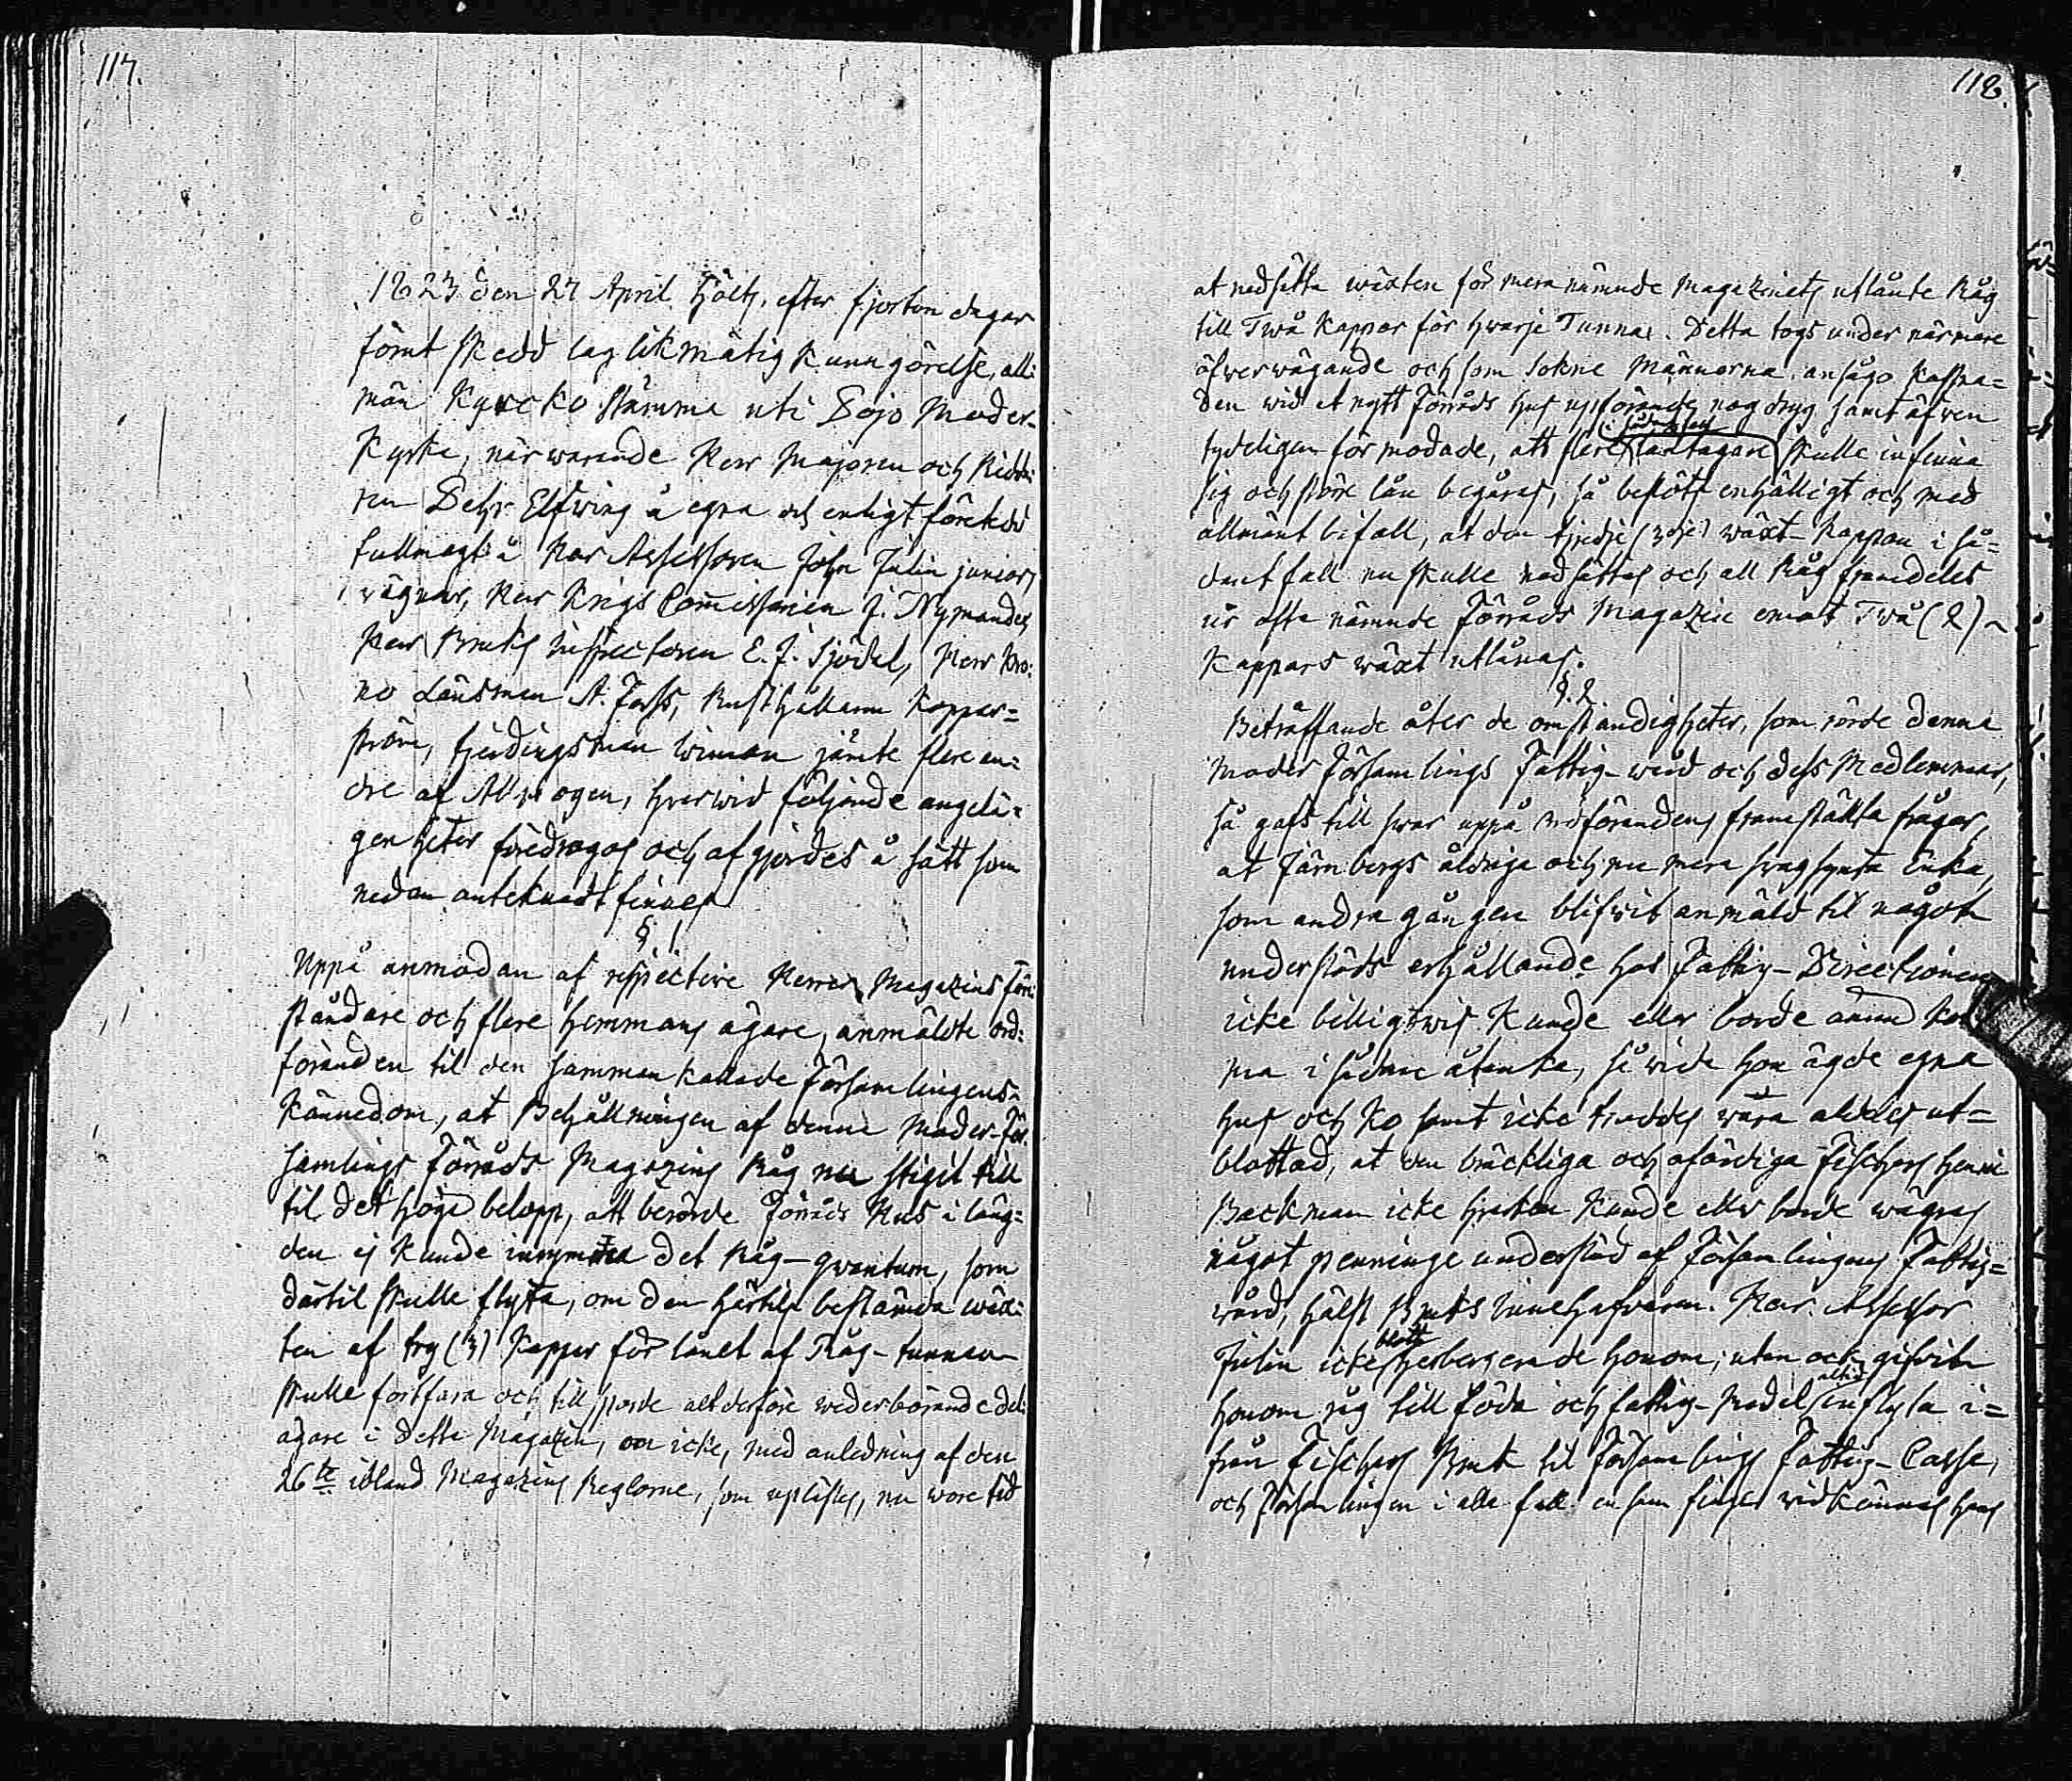 117.
1823 den 27 April hölts, efter fjorton dagar
förut skedd laglikmätig kunngörelse, all:
män Kyrcko stämma uti Pojo Moder-
Kyrka, närwarande Herr Majoren och Ridda:
ren Elfwing å egna och enligt företedd
fullmagt å Herr Assessoren John Julin juniors
wägnar, Herr Krigs Commissarien J. Nymander,
Herr Bruks Inspectoren E. J. Sjödel, Herr Kro:
no Länsman A. Forss, Rusthållaren Koppar=
ström, fjerdingsman Winman jämte flere an:
dre af Allmogen, hvarwid följande angelä:
genheter föredrogos och afgjordes å sätt som
nedan anteknadt finnes.
§. 1.
Uppå anmodan af respective Herrar Magazins före
ståndare och flere hemmans ägare, anmälte ord:
föranden til den sammankallade Församlingens
kännedom, at Behållningen af denne Moder-För
samlings Förråds Magazins Råg nu stigit till
til det höga belopp, att berörde Förråds Hus i läng:
den ej kunde inrymma det Råg-qvantum, som
därtil skulle flyta, om den härtils bestämda wäx:
ten af try (3) Kappar för lånet af Råg-tunnan
skulle fortfara och tillsporde altderföre wederbörande del:
ägare i dette Magazin, om icke, med anledning af den
26te ibland Magazins Reglorne, som uplästes, nu wore tid
118.
at nedsätta wäxten för mera nämnde Magazinets utlånte Råg
till Twå Kappar för hwarje Tunna. Detta togs under närmare
öfwerwägande och som Sokne Männerna ansågo kostna=
den wid et nytt Förråds hus uppförande nog dryg samt äfwen
tydeligen förmodade, att flere låntagare skulle infinna
sig och större lån begäras, så beslöts enhälligt och med
allmänt bifall, at den tredje (3dje) wäxt-Kappan i så=
dant fall nu skulle nedsättas och all Råg framdeles
ur ofta nämnde Förråds Magazin emot Twå (2)
Kappars wäxt utlånas.
§. 2
Beträffande åter de omständigheter, som rörde denna
Moder Församlings Fattig-wård och dess Medlemmar,
så gafs till swar uppå Ordförandens framställta frågor,
at Järnbergs åldriga och nu mera swagsynta Enka,
som andra gången blifwit anmäld til något
understöds erhållande hos Fattig-Directionen
icke billigtwis kunde eller borde ännu kom
ma i sådan åtanka, så wida hon ägde egna
hus och Ko samt icke troddes wara aldeles ut=
blottad, at den bräckliga och ofärdiga Fischars
Backman icke heller kunde eller borde wägras
något penninge understöd af Församlingens Fattig=
wård, hälst Bruks Innehafwaren Herr Assessor
Julin icke blott herbergerade honom, utan och gifwit
honom råg till föda och fattig-medel altid inflyta i=
från Fischars Bruk til Församlings Fattig-Cassa,
och Församlingen i alla fall widkännas hans